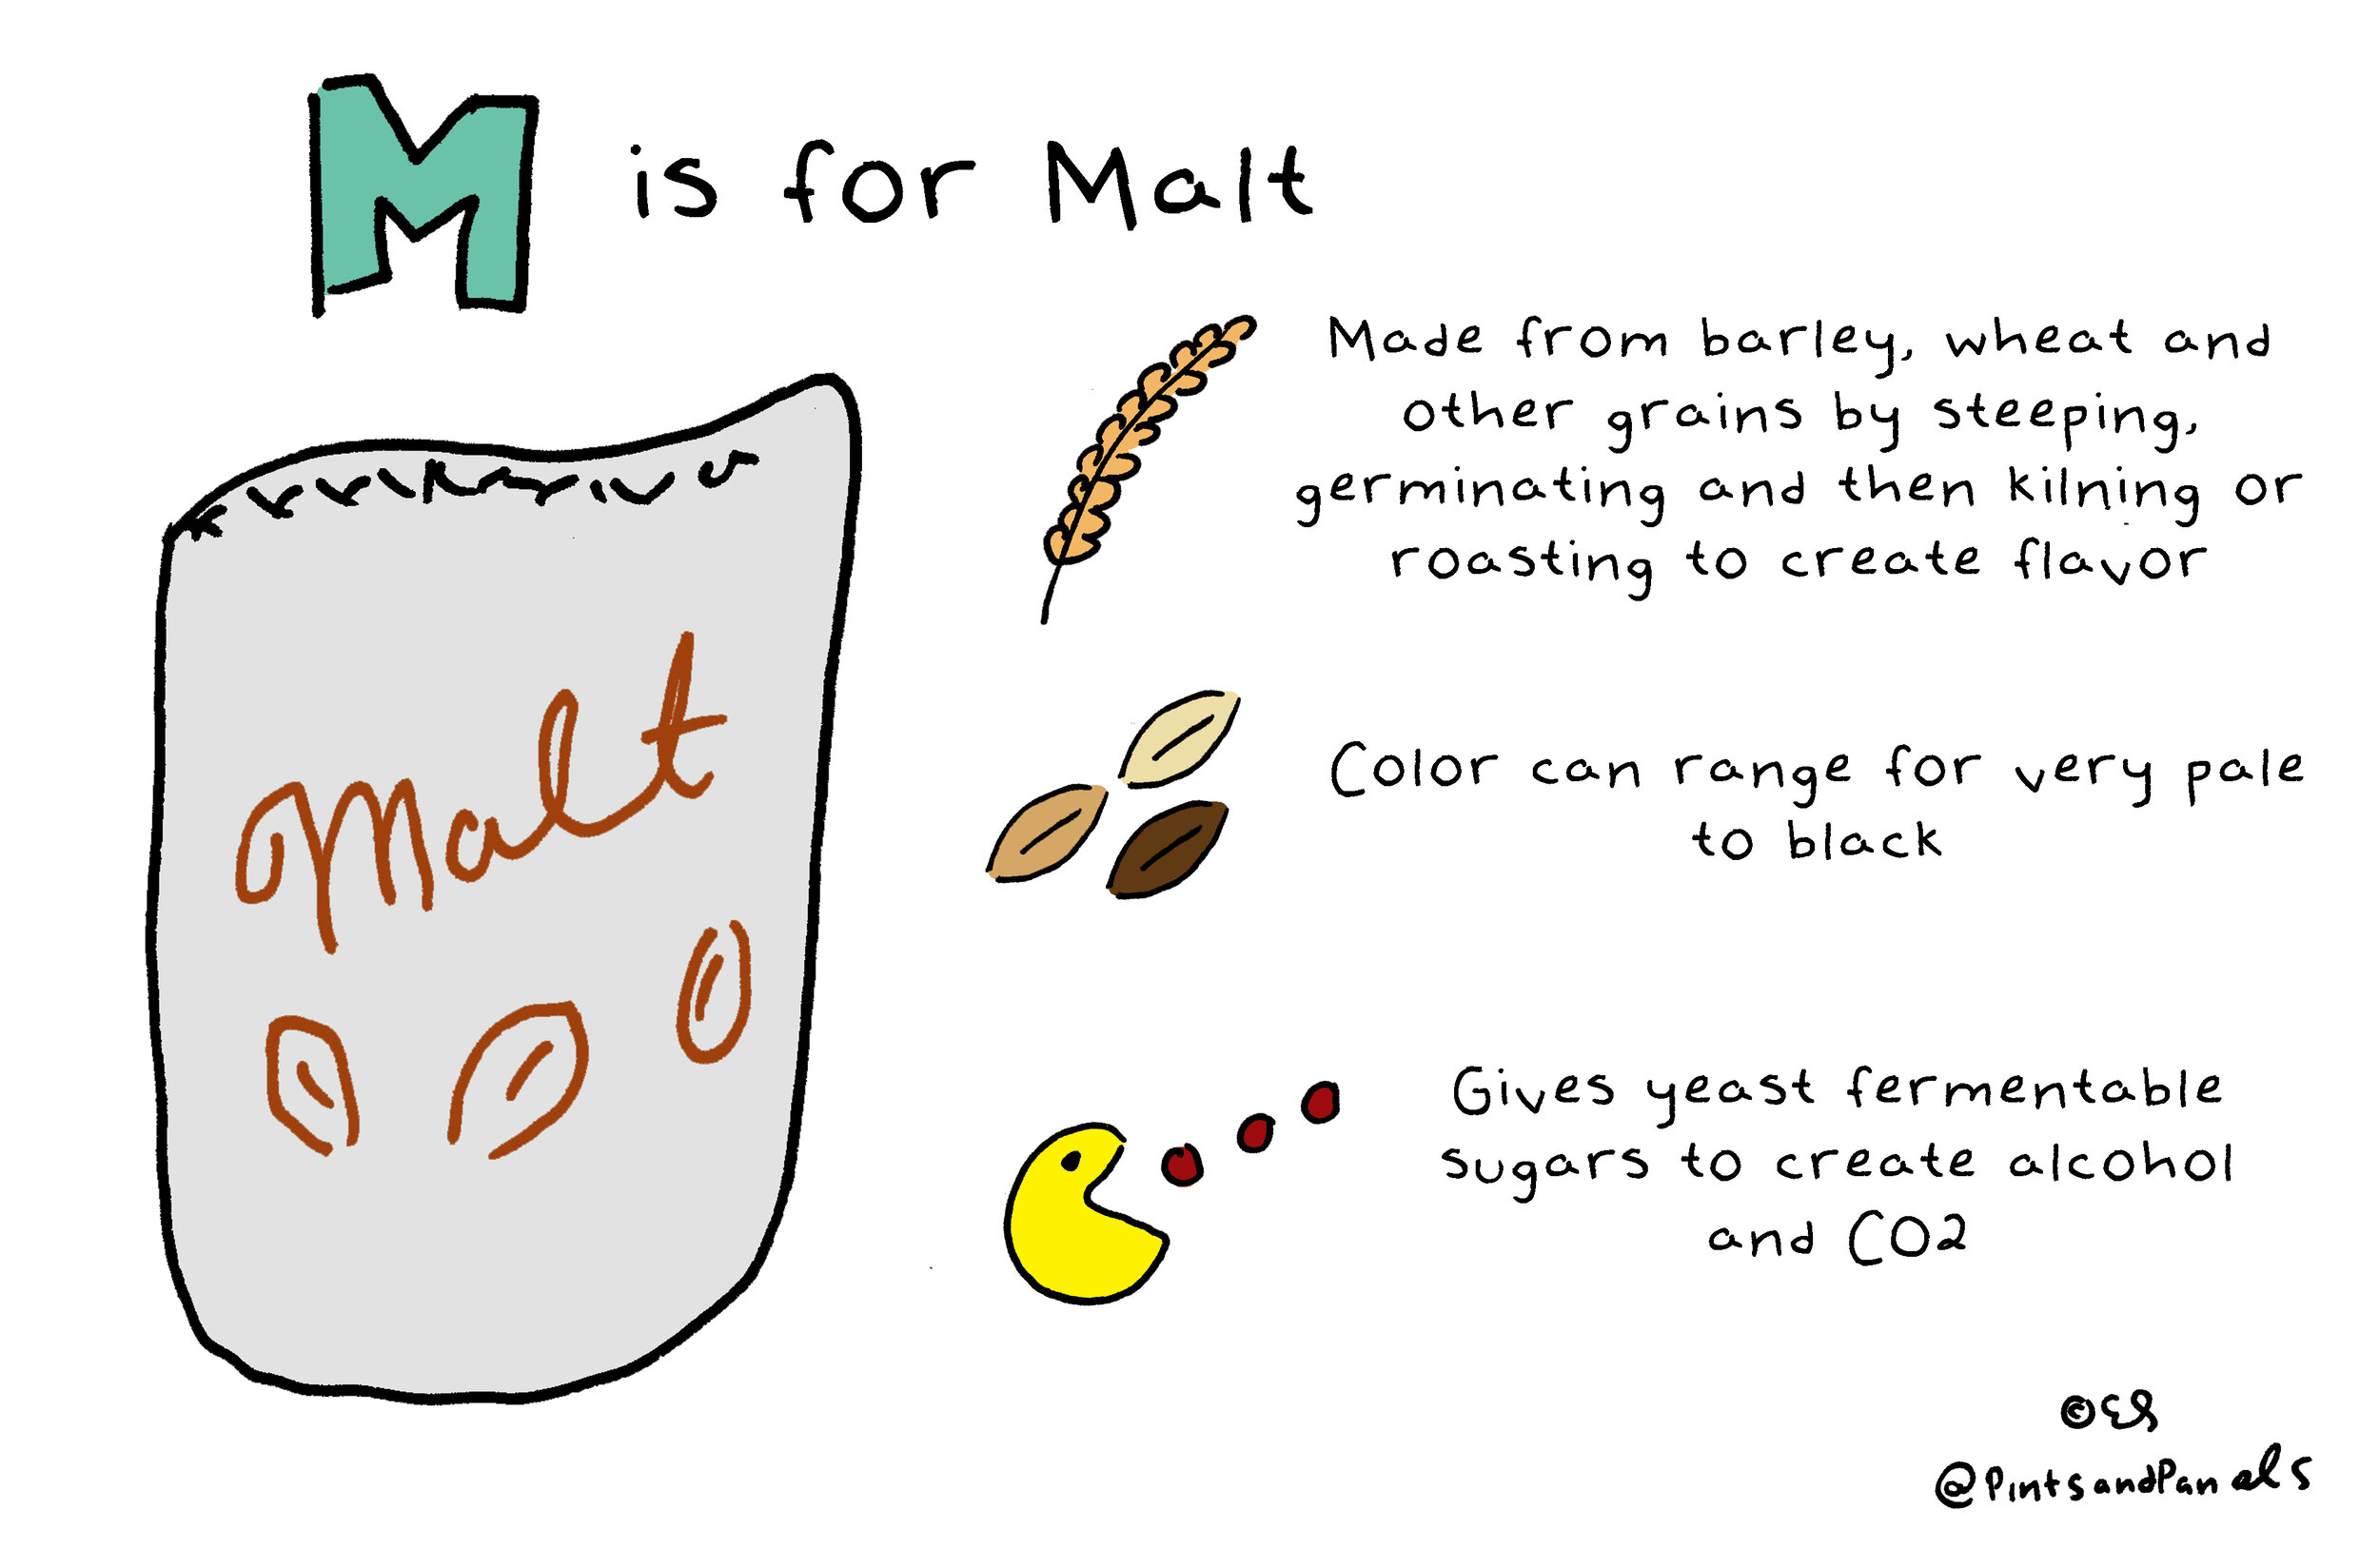 M is for Malt
Malt
Made from barley, wheat and
other grains by steeping,
germinating and then kilning or
roasting to create flavor
Color can range for very pale
to black
Gives yeast fermentable
sugars to create alcohol
and CO2
©ES
@PintsandPanels